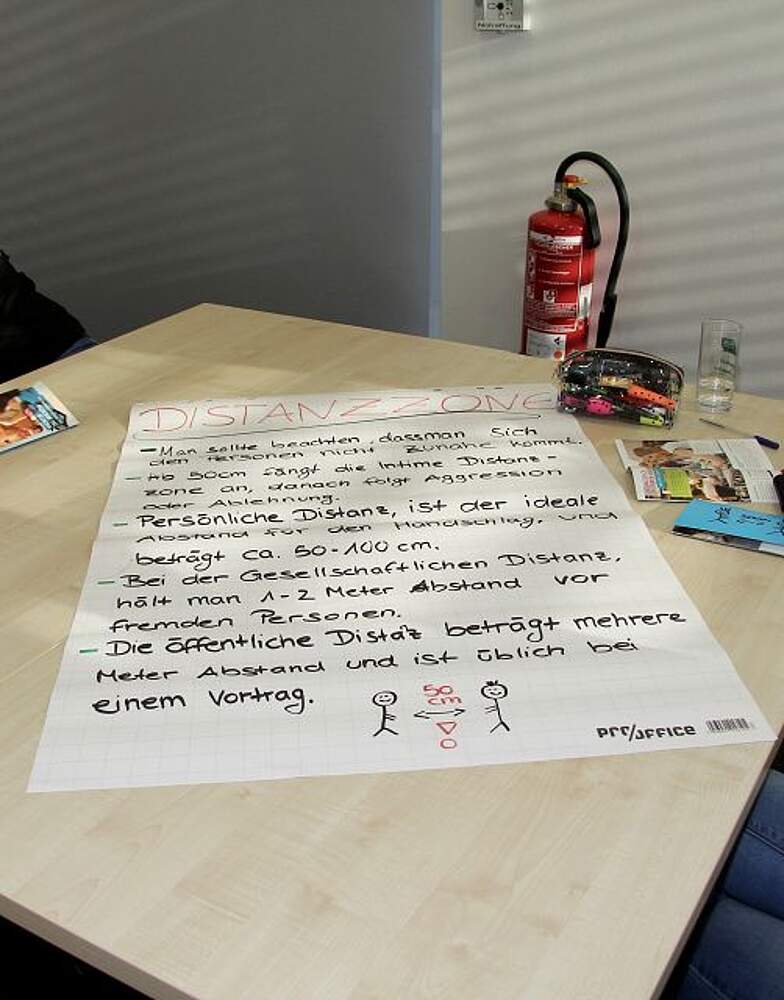 Notöffnung
DISTANZZONE
- Man sollte beachten, dassman Sich
den Personen nicht zunahe kommt.
- Ab 50cm fängt die Intime Distanz-
zone an, danach folgt Aggression
oder Ablehnung.
- Persönliche Distanz, ist der ideale
Abstand für den Handschlag, und
beträgt ca. 50-100 cm.
- Bei der Gesellschaftlichen Distanz,
hält man 1-2 Meter Abstand vor
fremden Personen.
- Die öffentliche Distaz beträgt mehrere
Meter Abstand und ist üblich bei
einem Vortrag.
50
cm
PRO/OFFICE